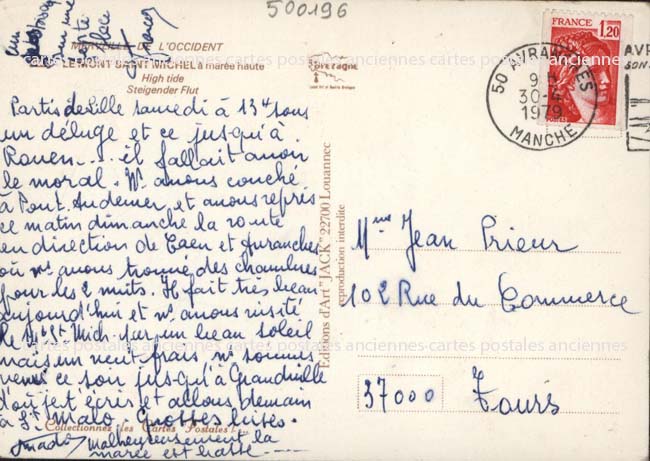 500196
MERVEILLE DE L'OCCIDENT
LE MONT SAINT MICHEL à marée haute
High tide
Steigender Flut
Bretagne
Partis de Lille samedi à 13h sous
un déluge et ce jusqu'à
Rouen... il fallait avoir
le moral. Ns avons couché
à Pont Audemer, et avons repris
ce matin dimanche la route
en direction de Caen et Avranches
où ns avons trouvé des chambres
pour les 2 nuits. Il fait très beau
aujourd'hui et ns avons visité
le Mt St Mich. sur un beau soleil
mais un vent frais ns sommes
venus ce soir jusqu'à Grandville
d'où je t'écris et allons demain
à St Malo. Grosses bises.
malheureusement la
marée est basse
Collectionnez les Cartes Postales !...
Editions d'Art "JACK" 22700 Louannec
reproduction interdite
FRANCE
1,20
50 AVRANCHES
30-4
1979
MANCHE
Mme Jean Prieur
102 Rue du Commerce
37000 Tours
cartes postales anciennes-cartes postales anciennes-cartes postales anciennes